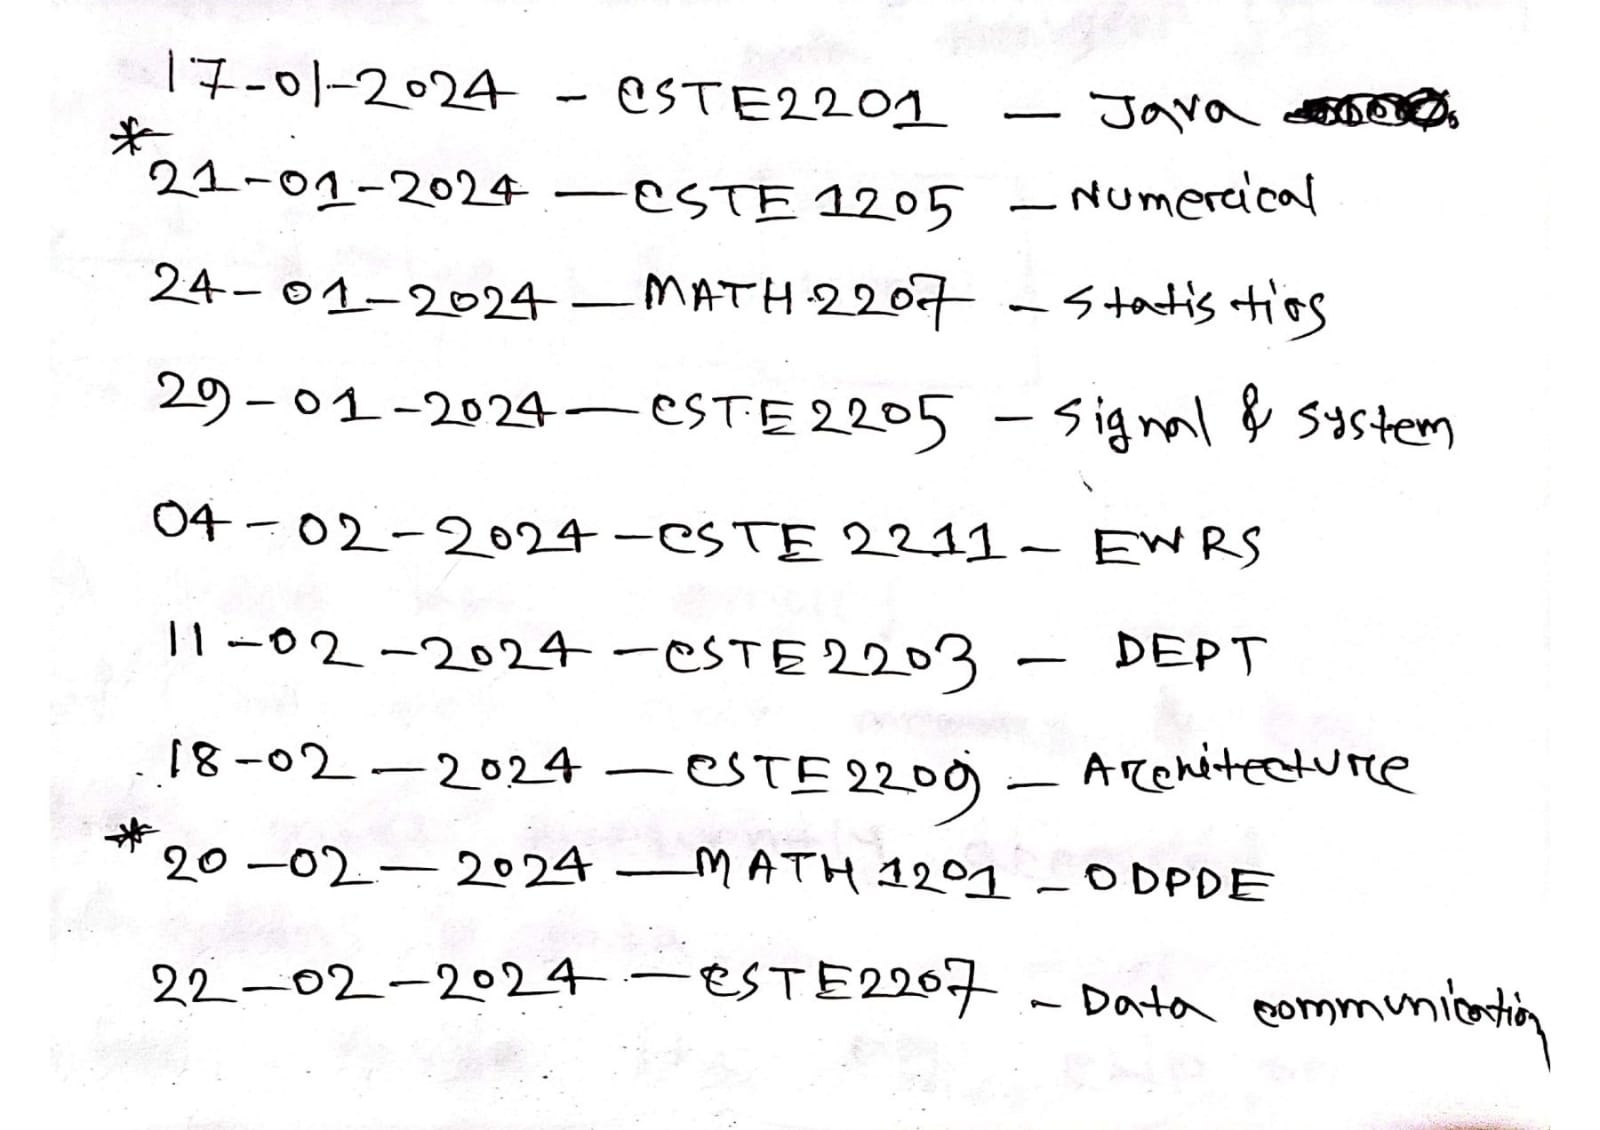 17-01-2024 - CSTE2201 — Java
* 21-01-2024 — CSTE 1205 — Numerical
24-01-2024 — MATH 2207 - Statistics
29-01-2024 — CSTE 2205 - Signal & System
04-02-2024 - CSTE 2211 - EWRS
11-02-2024 - CSTE 2203 - DEPT
18-02-2024 — CSTE 2209 — Architecture
* 20-02-2024 — MATH 1201 - ODPDE
22-02-2024 — CSTE2207 - Data communication